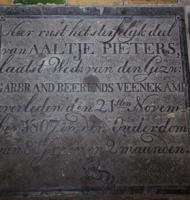 Hier rust het sterflyk deel
van AALTJE PIETERS,
laatst Wede van den Gezw:
GARBRAND BEERENDS VEENEKAMP
overleden den 21sten Novem
ber 1807 in den Ouderdom
van Jaaren en 2 maanden.